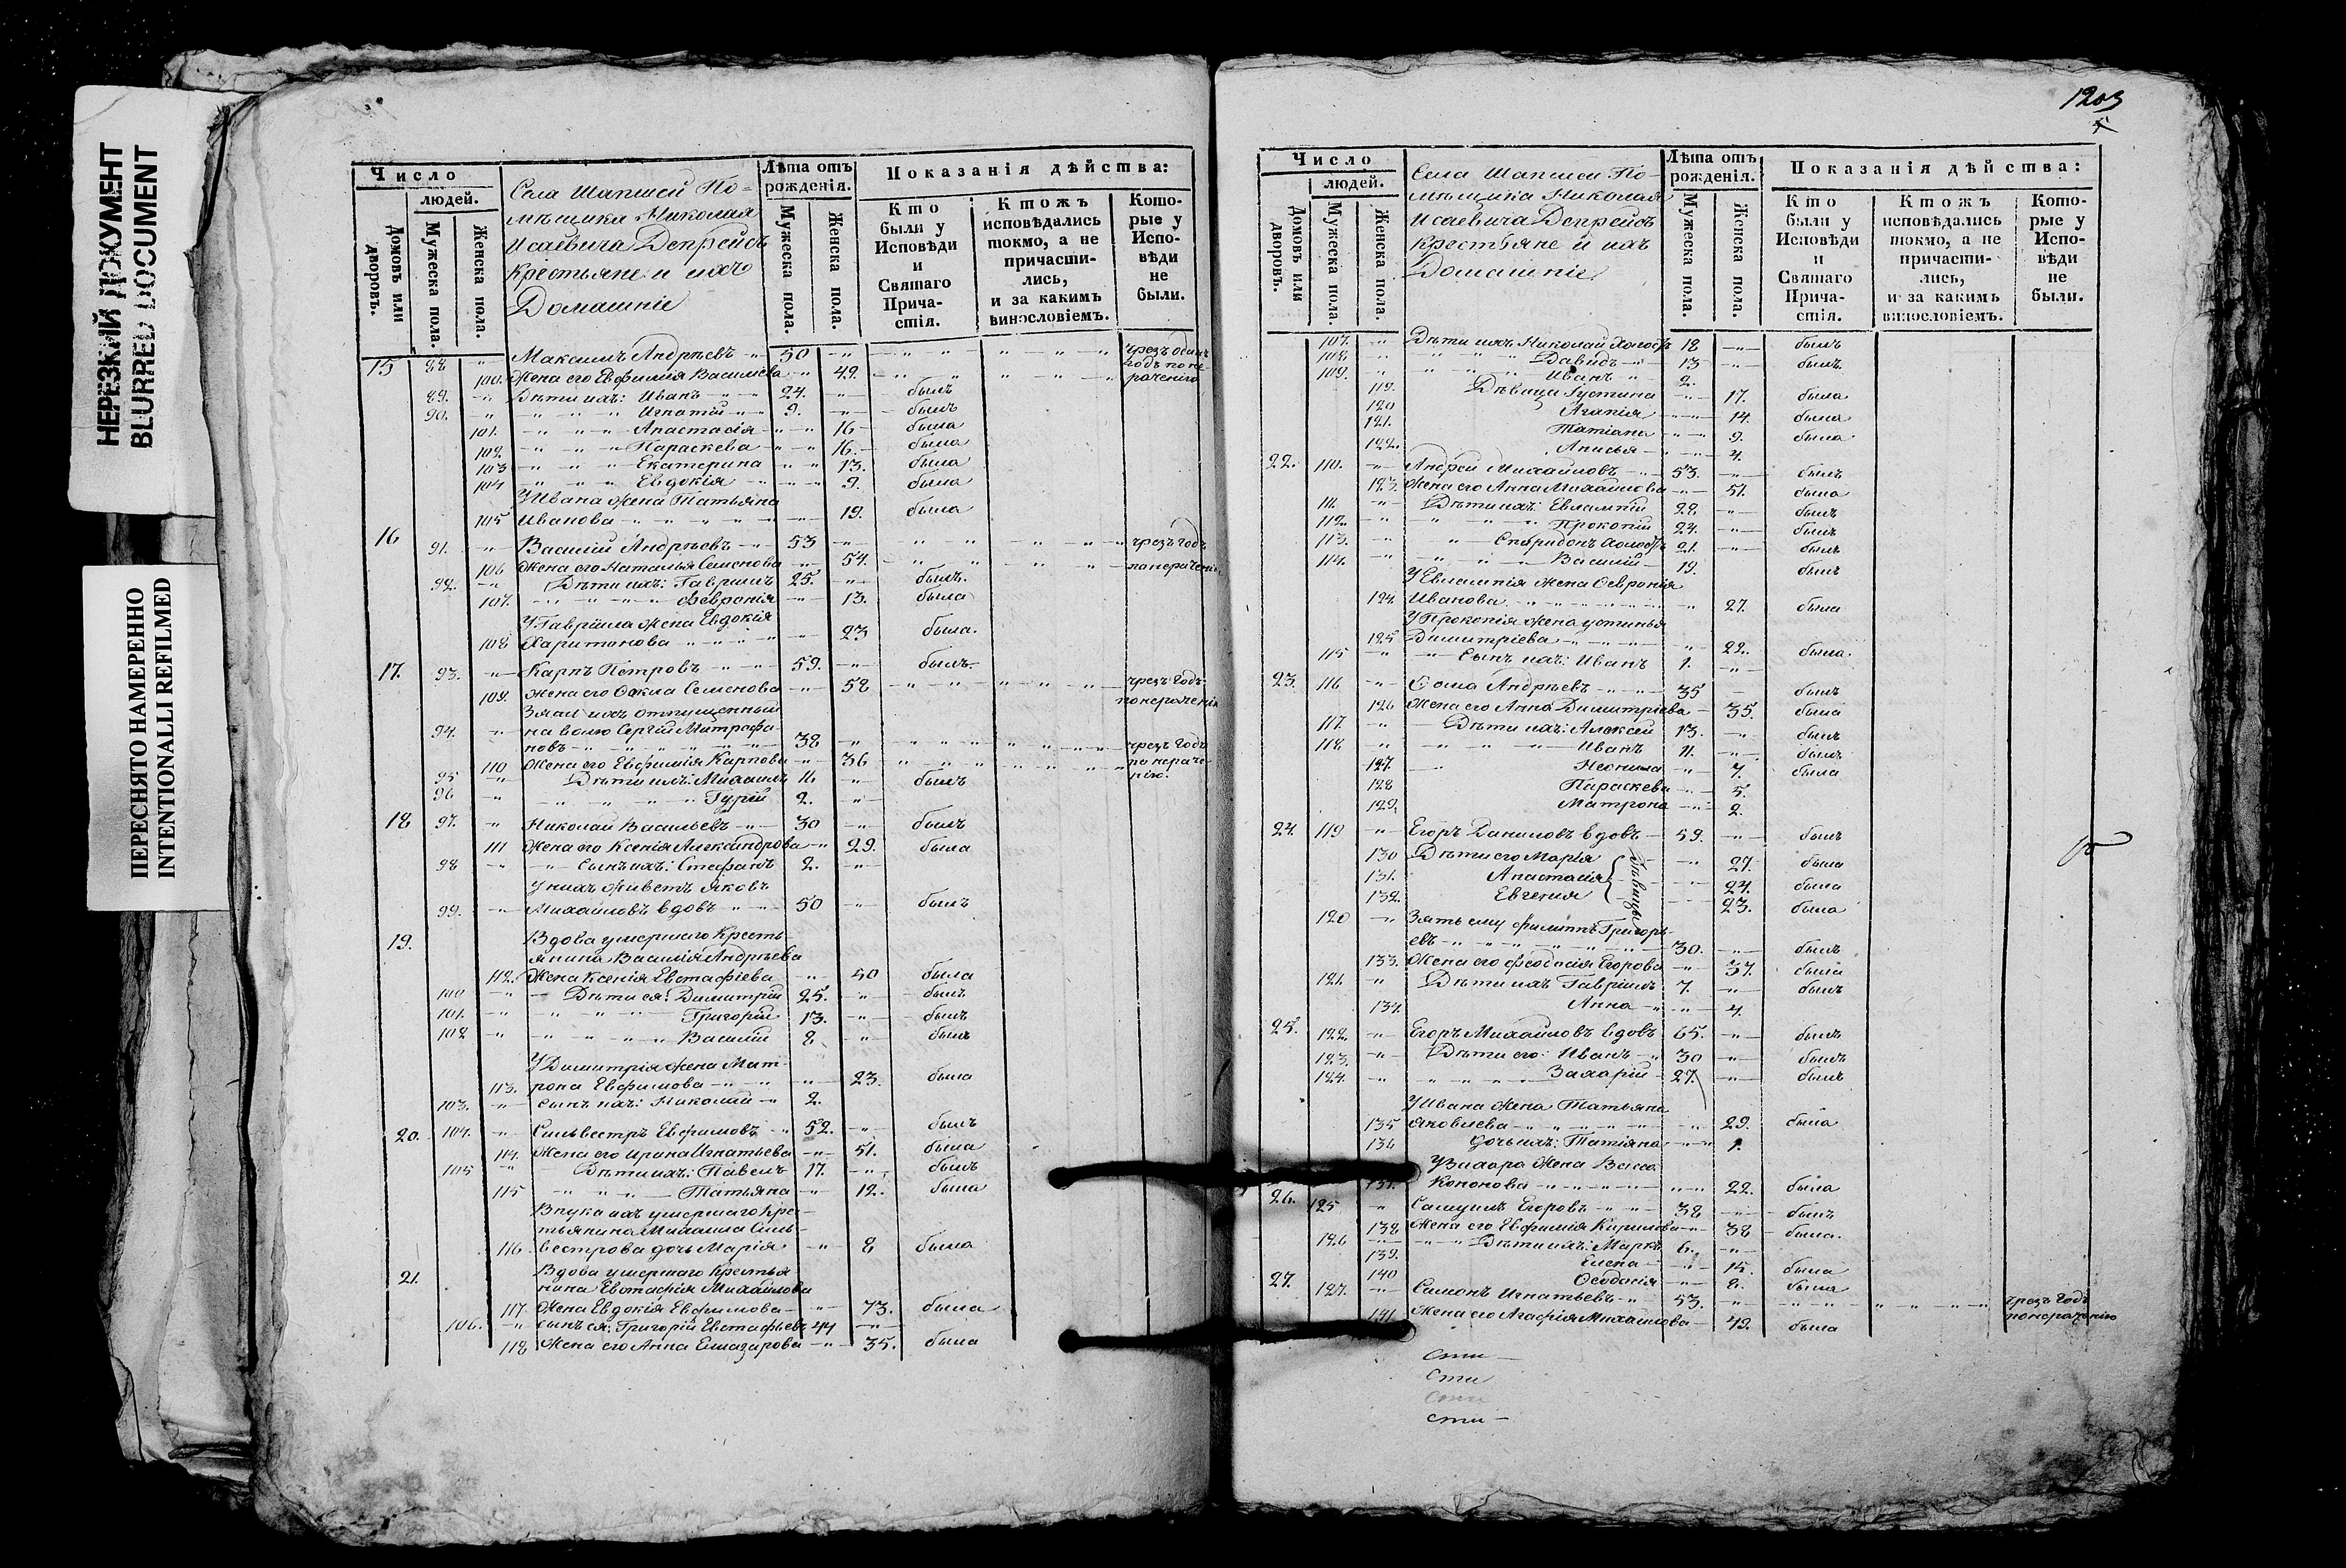 НЕРЕЗКИЙ ДОКУМЕНТ
BLURRED DOCUMENT
ПЕРЕСНЯТО НАМЕРЕННО
INTENTIONALLI REFILMED
Число
людей.
Домовъ или дворовъ.
Мужеска пола.
Женска пола.
Села Шапшей По-
мѣщика Николая
Исаевича Депрейсъ
Крестьяне и ихъ
Домашніе
Лѣта отъ рожденія.
Мужеска пола.
Женска пола.
Показанія дѣйства:
Кто были у Исповѣди и Святаго Прича-стія.
Ктожъ исповѣдались токмо, а не причасти-лись, и за какимъ винословіемъ.
Кото-рые у Испо-вѣди не были.
15 88 Максимъ Андрѣевъ 50 чрезъ одинъ годъ по не-
100. Жена его Евфимія Васильева 49. раченію
89. Дѣти ихъ: Иванъ 24. былъ
90. Игнатій 9. былъ
101. Анастасія 16 была
102 Параскева 16. была
103 Екатерина 13. была
104 Евдокія 9. была
У Ивана жена Татьяна
105 Иванова 19. была
16 91. Василій Андрѣевъ 53 чрезъ годъ
106 Жена его Наталья Семенова 54. по нераченію
92. Дѣти ихъ: Гавриилъ 25. былъ.
107. Февронія 13. была
У Гавріила жена Евдокія
108 Харитонова 23 была.
17. 93. Карпъ Петровъ 59. былъ.
109. Жена его Фекла Семенова 58 чрезъ годъ по нераченію
Зять ихъ отпущенный
94. на волю Сергій Митрофа-
новъ 38 чрезъ годъ
110 Жена его Евфимія Карпова 36 по нераче-
95 Дѣти ихъ: Михаилъ 11. былъ нію.
96 Гурій 2.
18 97. Николай Васильевъ 30 былъ
111 Жена его Ксенія Александрова 29. была
98 Сынъ ихъ: Стефанъ 2.
У нихъ живетъ Яковъ
99. Михайловъ вдовъ 50 былъ
19. Вдова умершаго Кресть-
янина Василія Андрѣева
112. Жена Ксенія Евстафіева 50 была
100 Дѣти ея: Димитрій 25. былъ
101. Григорій 13. былъ
102 Василій 8 былъ
У Димитрія жена Мат-
113. рона Евфимова 23. была
103. Сынъ ихъ: Николай 2.
20. 104. Сильвестръ Евфимовъ 52. былъ
114. Жена его Ирина Игнатьева 51. была
105 Дѣти ихъ: Павелъ 17. былъ
115 Татьяна 12. была
Внука ихъ умершаго Кре-
стьянина Михаила Силь-
116. вестрова дочь Марія 8 была
21. Вдова умершаго Крестья-
нина Евстафія Михайлова
117. Жена Евдокія Евфимова 73. была
106. Сынъ ея: Григорій Евстафьевъ 44
118 Жена его Анна Елиазарова 35. была
1203
Число
людей.
Домовъ или дворовъ.
Мужеска пола.
Женска пола.
Села Шапшей По-
мѣщика Николая
Исаевича Депрейсъ
Крестьяне и ихъ
Домашніе
Лѣта отъ рожденія.
Мужеска пола.
Женска пола.
Показанія дѣйства:
Кто были у Исповѣди и Святаго Прича-стія.
Ктожъ исповѣдались токмо, а не причасти-лись, и за какимъ винословіемъ.
Кото-рые у Испо-вѣди не были.
107. Дѣти ихъ Николай Холостъ 18 былъ
108. Давидъ 13 былъ
109. Иванъ 2.
119. Дѣвица Густина 17. была
120 Агапія 14. была
121. Татіана 9. была
122. Анисья 4.
22. 110. Андрей Михайловъ 53. былъ
123. Жена его Анна Михайлова 51. была
111. Дѣти ихъ: Евлампій 28 былъ
112. Прокопій 24. былъ
113. Спиридонъ холостъ 21. былъ
114. Василій 19. былъ
У Евлампія жена Февронія
124. Иванова 27. была
У Прокопія жена Устинья
125 Димитріева 22. была.
115 Сынъ ихъ: Иванъ 1.
23. 116 Фома Андрѣевъ 35 былъ
126 Жена его Анна Димитріева 35. была
117. Дѣти ихъ: Алексѣй 13. былъ
118. Иванъ 11. былъ
127. Неонила 7. была
128 Параскева 5.
129. Матрона 2.
24. 119 Егоръ Даниловъ вдовъ 59. былъ
130 Дѣти его Марія 27. была
131. Анастасія 24. была
132. Евгенія 23. была
Дѣвицы
120 Зять ему Филиппъ Григорь-
евъ 30. былъ
133. Жена его Феодосія Егорова 37. была
121. Дѣти ихъ Гавріилъ 7. былъ
134. Анна 4.
25. 122. Егоръ Михайловъ вдовъ 65. былъ
123. Дѣти его: Иванъ 30 былъ
124. Захарій 27. былъ
У Ивана жена Татьяна
135 Яковлева 29. была
136 Дочь ихъ: Татіяна 1.
У Захара жена Васса
137. Кононова 22. была
26. 125 Самуилъ Егоровъ 38 былъ
138 Жена его Евфимія Кирилова 38 была.
126 Дѣти ихъ: Маркъ 6.
139. Елена 15. была
140 Феодосія 8. была
27. 127. Самонъ Игнатьевъ 53. чрезъ годъ
141. Жена его Агафія Михайлова 49. была по нераченію